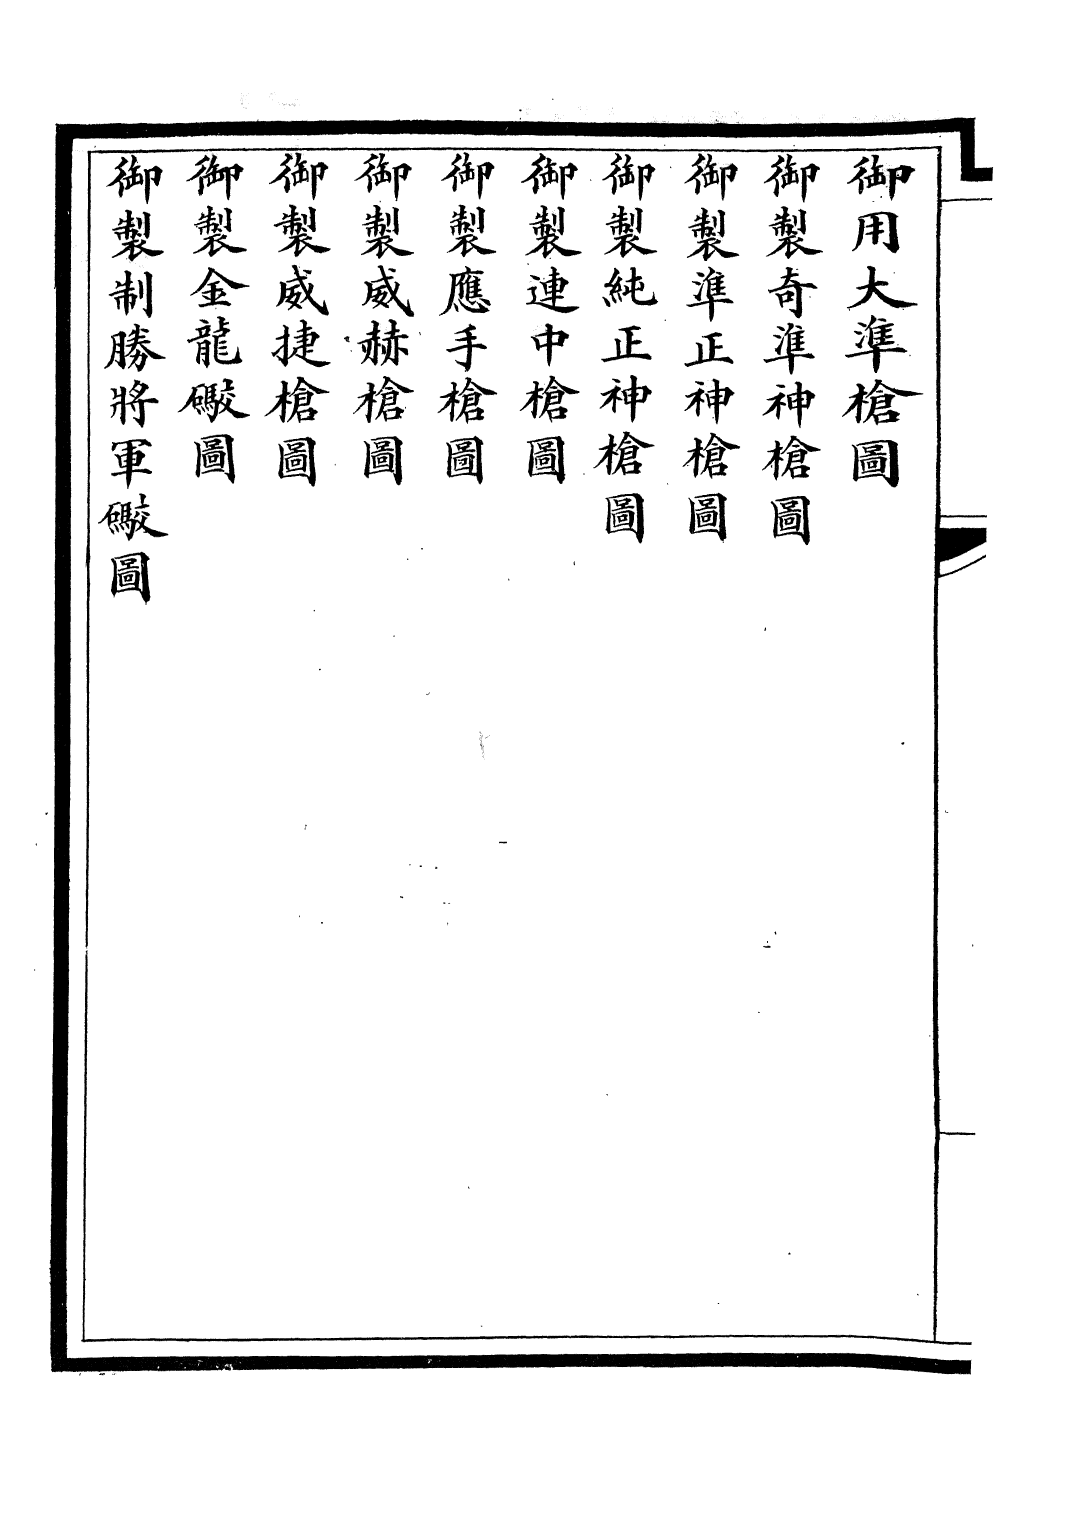 御用大準槍圖
御製奇準神槍圖
御製準正神槍圖
御製純正神槍圖
御製連中槍圖
御製應手槍圖
御製威赫槍圖
御製威捷槍圖
御製金龍礮圖
御製制勝將軍礮圖